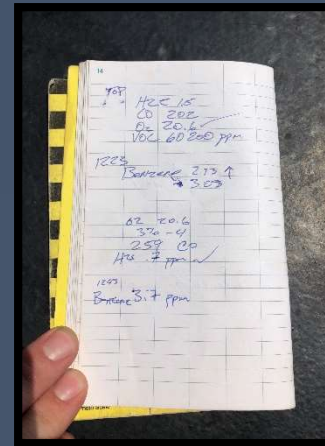 14
TOP
H2S 1.5
CO 202
O2 20.6
VOC 60200 ppm
1223
Benzene 2.93 ↑
→ 3.03
O2 20.6
376-4
259 CO
H2S .7 ppm ✓
1243
Benzene 3.7 ppm